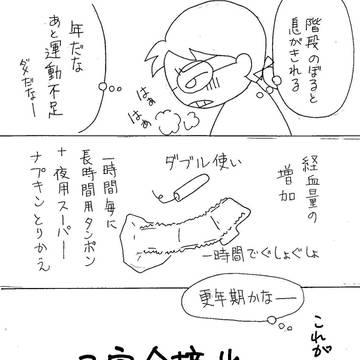 階段のぼると
息がきれる
はぁ
はぁ
年だな
あと運動不足
ダメだなー
経血量の
増加
ダブル使い
一時間でぐしょぐしょ
一時間毎に
長時間用タンポン
+夜用スーパー
ナプキンとりかえ
更年期かなー
これが